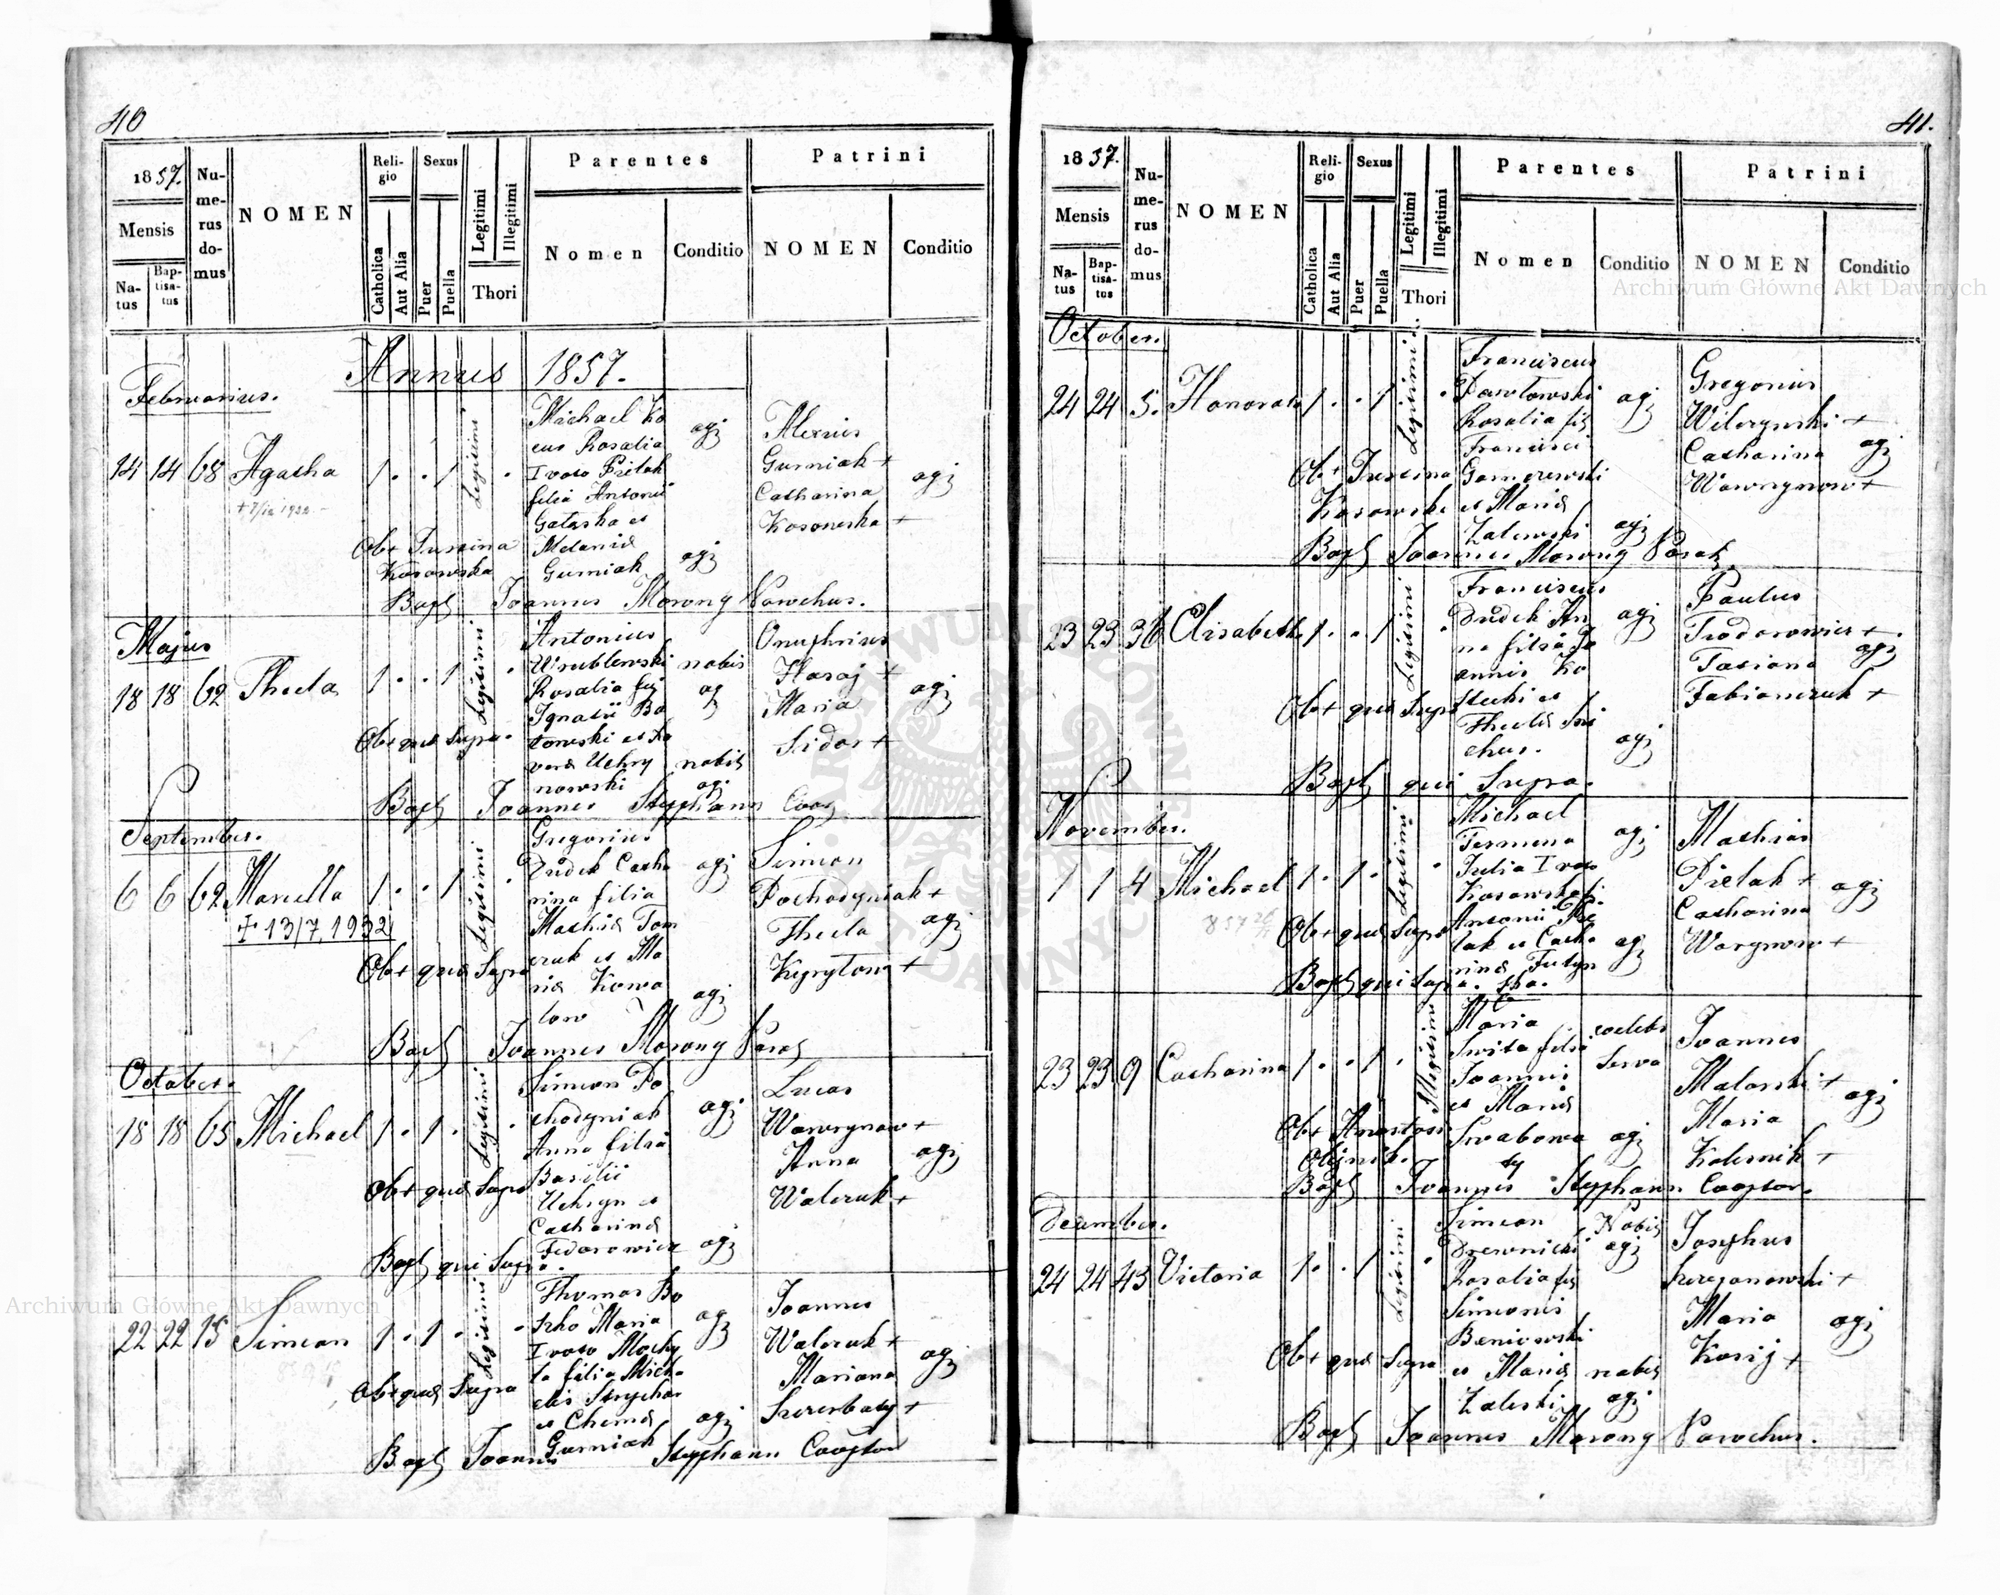 40
1857.
Mensis
Na-
tus
Bap-
tisa-
tus
Nu-
me-
rus
do-
mus
NOMEN
Reli-
gio
Catholica
Aut Alia
Sexus
Puer
Puella
Legitimi
Illegitimi
Thori
Parentes
Nomen
Conditio
Patrini
NOMEN
Conditio
Annus 1857.
Februarius.
14 14 68 Agatha 1 . . 1 Legitimi .
Michael Ko
cus Rosalia
I voto Pietak
filia Antonii
Gataska et
Melaniæ
Gurniak
agr
agr
Alexius
Gurniak +
Catharina
Kosowska +
agr
Obst Turcina
Kosowska
Bapt Joannes Morong Parochus.
Majus
18 18 62 Thecla 1 . . 1 Legitimi .
Antonius
Wrublewski nobis
Rosalia fil ag
Ignatii Bo
nowski
nobil
agr
Onuphrius
Haraj +
Maria
Sidor +
agr
Obst quæ Supra.
Bapt Joannes Stephann Coop
September.
6 6 62 Marcella 1 . . 1 Legitimi .
+ 13/7 1932
Gregorius
Dudek Catha
rina filia
Mathiæ Tom
czuk et Ma
riæ Kowa
low
agr
agr
Simeon
Pochodyniak +
Thecla
Kyrylow +
agr
Obst quæ Supra
Bapt Joannes Morong Paroch
October.
18 18 65 Michael 1 . 1 . Legitimi .
Simeon Po
chodyniak
Anna filia
Basilii
Uchryn et
Catharinæ
Fedorowicz
agr
agr
Lucas
Wawrynow +
Anna
Walczuk +
agr
Obst quæ Supra
Bapt qui Supra.
22 22 15 Simeon 1 . 1 . Legitimi .
Thomas Bo
Maria
I voto Mochy
ta filia Mich
elis Strychar
et
Gurniak
agr
agr
Joannes
Walczuk +
Mariana
Szczerbaty +
agr
Obst quæ Supra
Bapt Joannes Stephann Cooptor
41.
1857.
Mensis
Na-
tus
Bap-
tisa-
tus
Nu-
me-
rus
do-
mus
NOMEN
Reli-
gio
Catholica
Aut Alia
Sexus
Puer
Puella
Legitimi
Illegitimi
Thori
Parentes
Nomen
Conditio
Patrini
NOMEN
Conditio
October.
24 24 5. Honorata 1 . . 1 Legitimi .
Franciscus
Pawlowski
Rosalia fil
Francisci
et Mariæ
Zalewski
agr
agr
Gregorius
Wilczynski +
Catharina
Wawrynow +
agr
Obst Turcina
Kosowska
Bapt Joannes Morong Paroch
23 23 36 Elisabeth 1 . . 1 Legitimi .
Franciscus
Dudek An
na filia Jo
annis Ko
stecki et
Theclæ
agr
agr
Paulus
Teodorowicz +
Tatiana
Fabianczuk +
agr
Obst quæ Supra
Bapt qui Supra.
November.
1 1 4 Michael 1 . 1 . Legitimi .
Michael
Julia I voto
Kosowska fil
Antonii Pie
tak et Catha
rinæ
agr
agr
Mathias
Pietak +
Catharina
Warynow +
agr
Obst quæ Supra
Bapt qui Supra.
23 23 9 Catharina 1 . . 1 . Illegitimi
Maria
Swita filia
Joannis
et Mariæ
Swabowa
coelebs
serva
agr
Joannes
Malarski +
Maria
Kolesnik +
agr
Obst Anastasia
Olijnik.
Bapt Joannes Stephann Cooptor.
December.
24 24 43 Victoria 1 . . 1 Legitimi .
Simeon
Drewnicki
Rosalia fil
Simeonis
Beniowski
et Mariæ
Zaleski
Nobil
agr
nobil
agr
Josephus
Szczepanowski +
Maria
Kosij +
agr
Obst quæ Supra
Bapt Joannes Morong Parochus.
Archiwum Główne Akt Dawnych
Archiwum Główne Akt Dawnych
ARCHIWUM GŁÓWNE AKT DAWNYCH